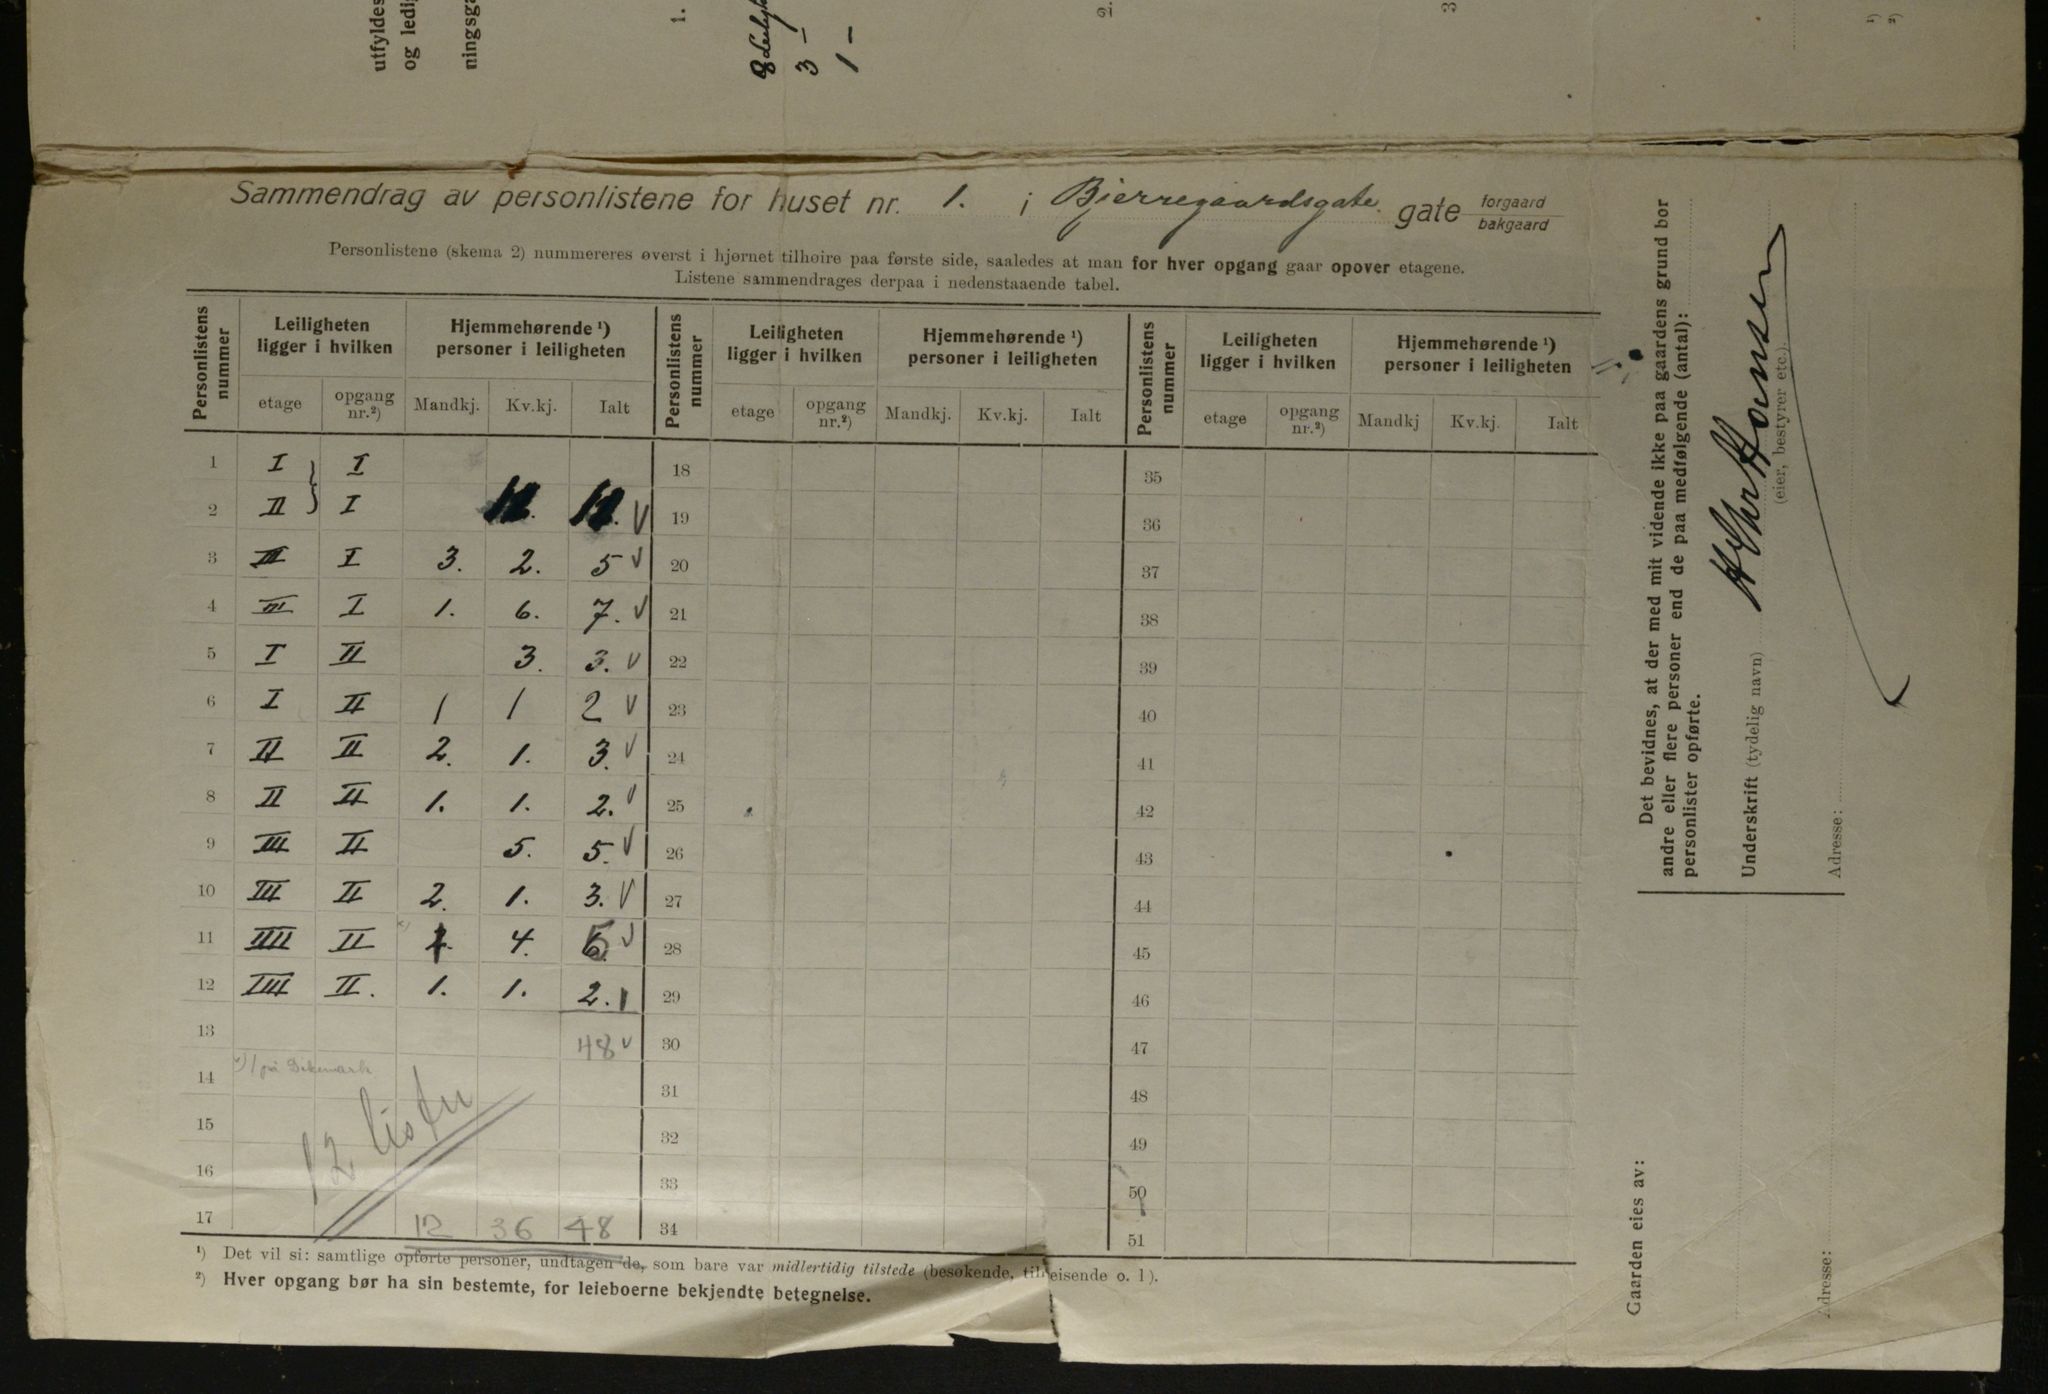 utfyldes
og ledig
ningsga
1.
8
3 —
1 —
3
1)
2)
Sammendrag av personlistene for huset nr. 1. i Bjerregaardsgate. gate forgaard
bakgaard
Personlistene (skema 2) nummereres øverst i hjørnet tilhøire paa første side, saaledes at man for hver opgang gaar opover etagene.
Listene sammendrages derpaa i nedenstaaende tabel.
Personlistens nummer | Leiligheten ligger i hvilken | Hjemmehørende 1) personer i leiligheten | Personlistens nummer | Leiligheten ligger i hvilken | Hjemmehørende 1) personer i leiligheten | Personlistens nummer | Leiligheten ligger i hvilken | Hjemmehørende 1) personer i leiligheten
etage | opgang nr.2) | Mandkj. | Kv.kj. | Ialt | etage | opgang nr.2) | Mandkj. | Kv.kj. | Ialt | etage | opgang nr.2) | Mandkj | Kv.kj. | Ialt
1 I } I 18 35
2 II } I V 19 36
3 III I 3. 2. 5 V 20 37
4 III I 1. 6. 7. V 21 38
5 I II 3. 3. V 22 39
6 I II 1 1 2 V 23 40
7 II II 2. 1. 3. V 24 41
8 II II 1. 1. 2. V 25 42
9 III II 5. 5. V 26 43
10 III II 2. 1. 3. V 27 44
11 IIII II 1. 4. 5 V 28 45
12 IIII II. 1. 1. 2. 29 46
13 48 V 30 47
14 *) 1 på Dikemark 31 48
15 12 lister 32 49
16 33 50
17 12 36 48 34 51
1) Det vil si: samtlige opførte personer, undtagen de, som bare var midlertidig tilstede (besøkende, tilreisende o. l).
2) Hver opgang bør ha sin bestemte, for leieboerne bekjendte betegnelse.
Det bevidnes, at der med mit vidende ikke paa gaardens grund bor
andre eller flere personer end de paa medfølgende (antal):
personlister opførte.
Underskrift (tydelig navn)
(eier, bestyrer etc.).
Adresse:
Gaarden eies av:
Adresse: